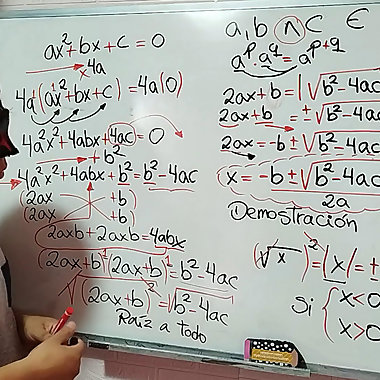 ax²+bx+c = 0
x4a
4a(ax²+bx+c) = 4a(0)
4a²x²+4abx+4ac = 0
+b²
4a²x²+4abx+b² = b²-4ac
(2ax +b)
(2ax +b)
2axb+2axb=4abx
(2ax+b)¹(2ax+b)¹=b²-4ac
√(2ax+b)² = √b²-4ac
Raíz a todo
a,b ∧ C ∈
aᵖ·a𐞥 = aᵖ⁺𐞥
2ax+b = |√b²-4ac
2ax+b = ±√b²-4ac
2ax = -b±√b²-4ac
x = -b±√b²-4ac
2a
Demostración
(√x)² = |x| = ±
Si { x<0
x>0